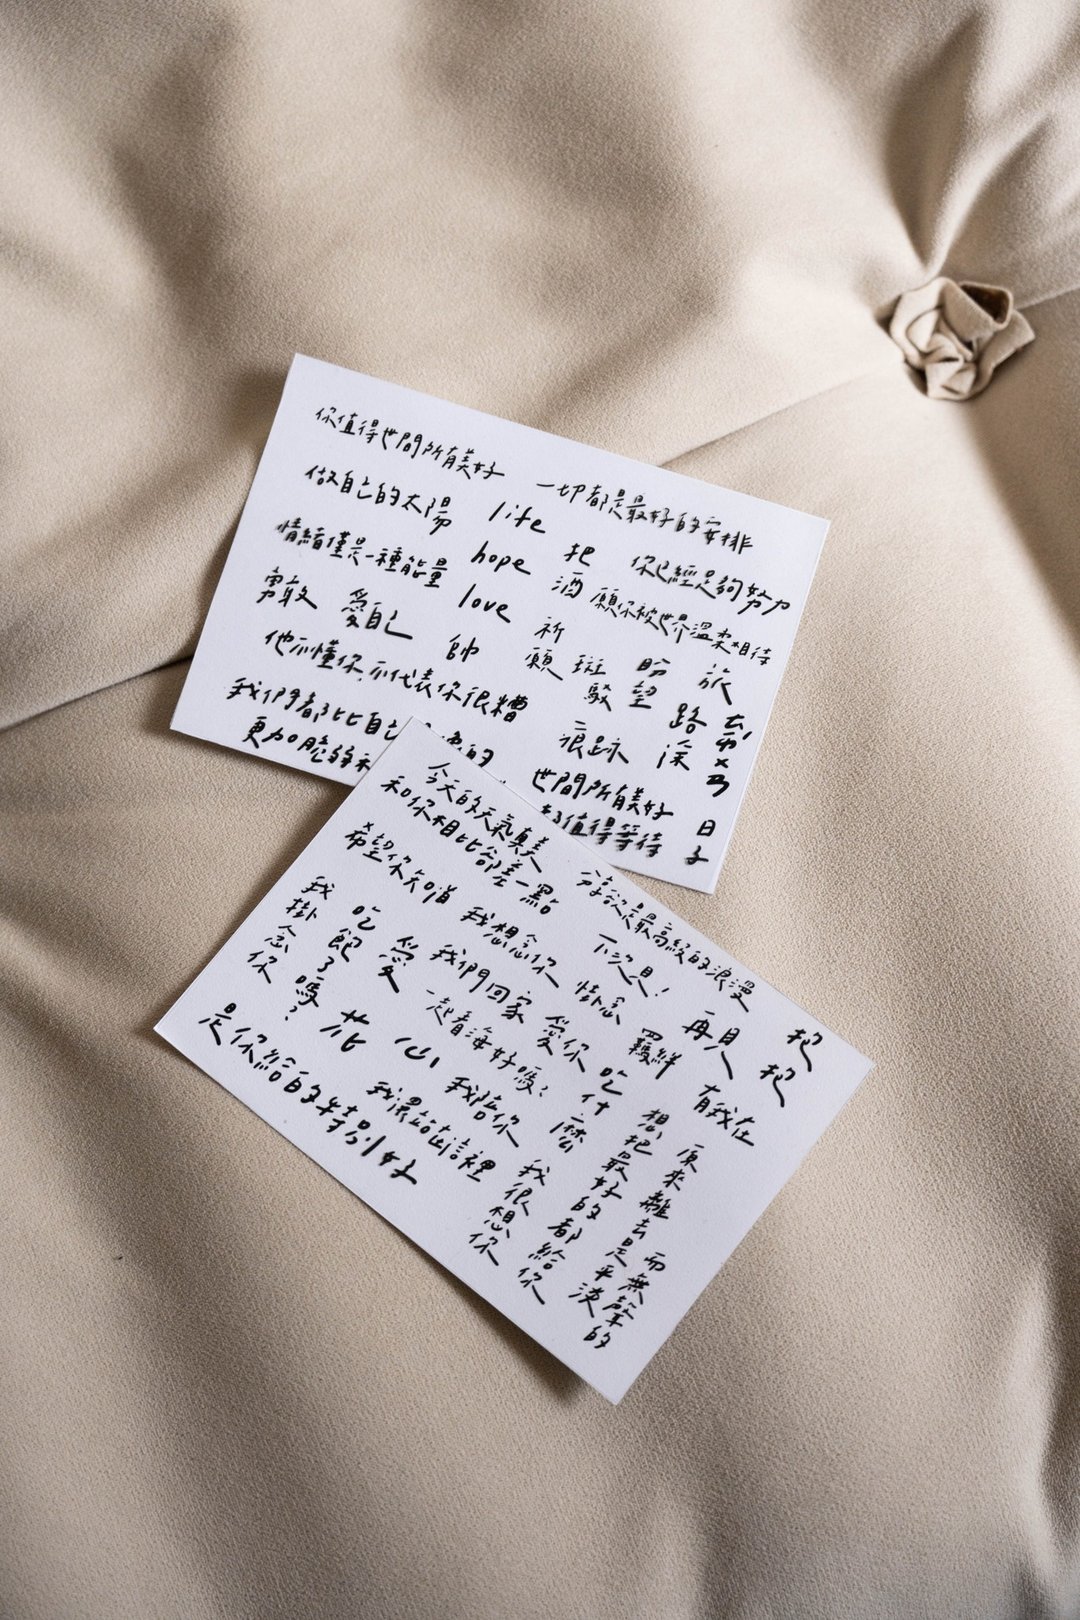 你值得世間所有美好
一切都是最好的安排
做自己的太陽
life
把酒
你已經足夠努力
情緒僅是一種能量
hope
祈願
願你被世界溫柔相待
勇敢
愛自己
love
帥
斑駁
盼望
旅路
他不懂你,不代表你很糟
痕跡
塗
我們都比自己
的
更加脆弱
世間所有美好
值得等待
日子
今天的天氣真美
和你相比都差一點
分享欲是最高級的浪漫
希望你知道
我想念你
下次見!
我掛念你
吃飽了嗎?
愛
我們回家
掛念
再見
抱抱
一起看海好嗎?
愛你
羈絆
有我在
花心
我陪你
吃什麼
是你給的特別好
我還站在這裡
我很想你
想把最好的都給你
原來離去是平淡的
而無聲的